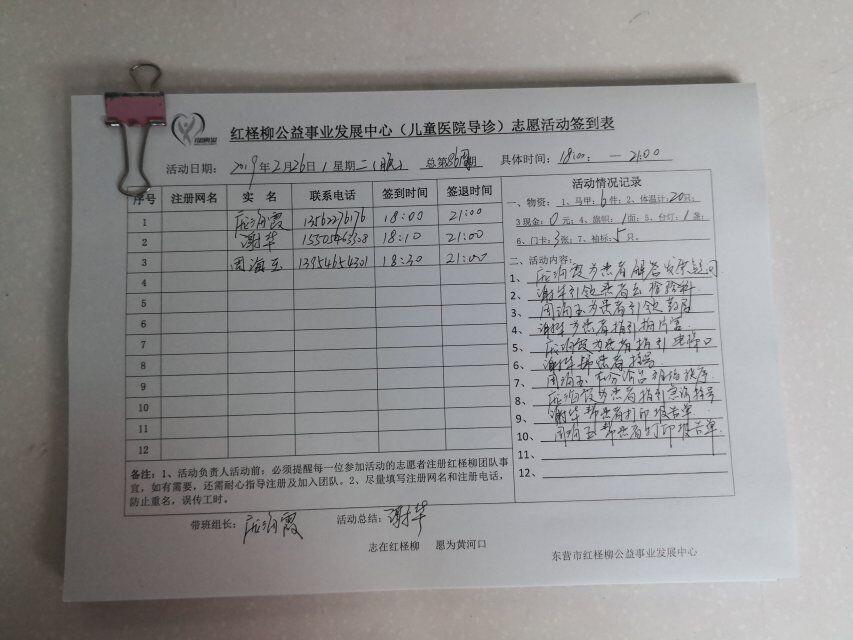 红柽柳公益事业发展中心（儿童医院导诊）志愿活动签到表
活动日期：2019年2月26日 星期二（晚） 总第86期 具体时间：18:00: — 21:00
序号 注册网名 实 名 联系电话 签到时间 签退时间
1 霞 13562276176 18:00 21:00
2 谢华 18:10 21:00
3 周海玉 13954654301 18:30 21:00
4
5
6
7
8
9
10
11
12
备注：1、活动负责人活动前：必须提醒每一位参加活动的志愿者注册红柽柳团队事
宜，如有需要，还需耐心指导注册及加入团队。2、尽量填写注册网名和注册电话，
防止重名，误传工时。
活动情况记录
一、物资： 1、马甲：6件；2、体温计：20只；
3 现金：0元；4、旗帜：1面；5、台灯：1盏；
6、门卡：3张；7、袖标：5只。
二、活动内容：
1、霞为患者解答疑问
2、谢华引领患者去检验科
3、周海玉为患者引领药房
4、谢华为患者指引拍片室
5、霞为患者指引电梯口
6、谢华帮患者挂号
7、周海玉 维持秩序
8、为患者指引 挂号
9、谢华帮患者打印报告单
10、周海玉帮患者打印报告单
11、
12、
带班组长：霞 活动总结：谢华
志在红柽柳 愿为黄河口
东营市红柽柳公益事业发展中心